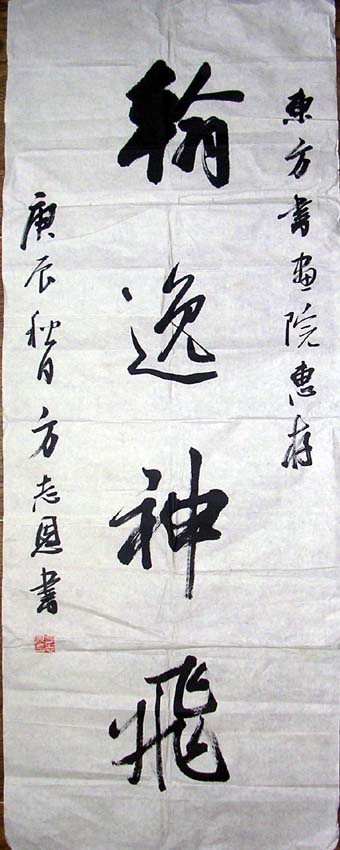 東方書畫院惠存
翰逸神飛
庚辰秋日方志恩書